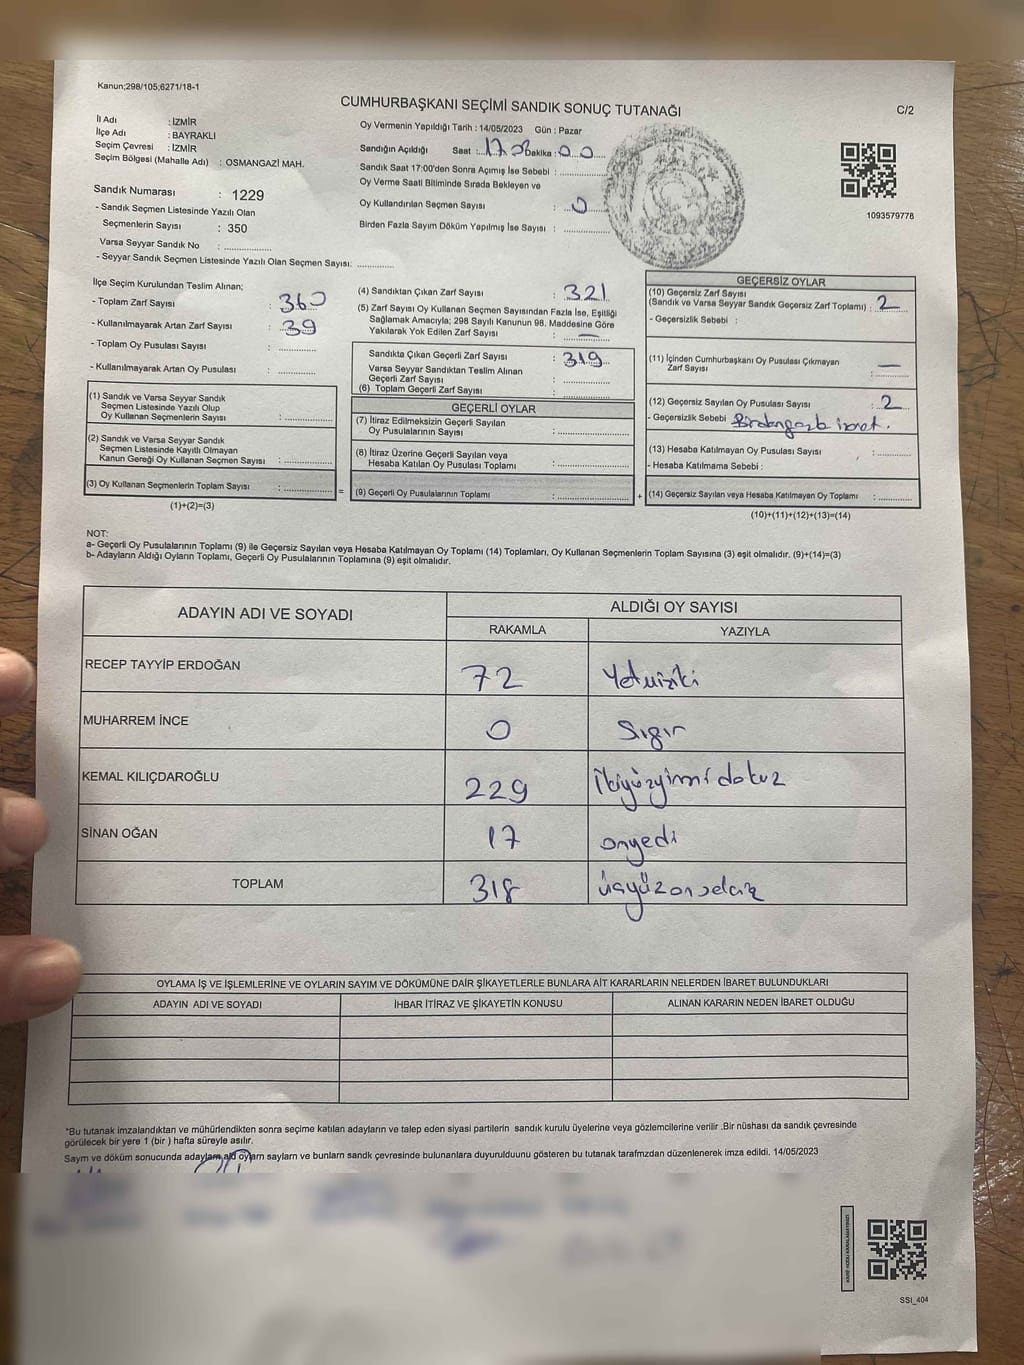 Kanun;298/105;6271/18-1
CUMHURBAŞKANI SEÇİMİ SANDIK SONUÇ TUTANAĞI
C/2
İl Adı : İZMİR
İlçe Adı : BAYRAKLI
Seçim Çevresi : İZMİR
Seçim Bölgesi (Mahalle Adı) : OSMANGAZİ MAH.
Sandık Numarası : 1229
- Sandık Seçmen Listesinde Yazılı Olan
Seçmenlerin Sayısı : 350
Varsa Seyyar Sandık No : ..............
- Seyyar Sandık Seçmen Listesinde Yazılı Olan Seçmen Sayısı: ............
Oy Vermenin Yapıldığı Tarih : 14/05/2023 Gün : Pazar
Sandığın Açıldığı Saat : 17 Dakika : 00
Sandık Saat 17:00'den Sonra Açımış İse Sebebi : ..............
Oy Verme Saati Bitiminde Sırada Bekleyen ve
Oy Kullandırılan Seçmen Sayısı : 0
Birden Fazla Sayım Döküm Yapılmış İse Sayısı : ..............
1093579778
İlçe Seçim Kurulundan Teslim Alınan;
- Toplam Zarf Sayısı : 360
- Kullanılmayarak Artan Zarf Sayısı : 39
- Toplam Oy Pusulası Sayısı : ............
- Kullanılmayarak Artan Oy Pusulası : ............
(1) Sandık ve Varsa Seyyar Sandık
Seçmen Listesinde Yazılı Olup
Oy Kullanan Seçmenlerin Sayısı : ..............
(2) Sandık ve Varsa Seyyar Sandık
Seçmen Listesinde Kayıtlı Olmayan
Kanun Gereği Oy Kullanan Seçmen Sayısı : ..............
(3) Oy Kullanan Seçmenlerin Toplam Sayısı : ..............
(1)+(2)=(3)
(4) Sandıktan Çıkan Zarf Sayısı : 321
(5) Zarf Sayısı Oy Kullanan Seçmen Sayısından Fazla İse, Eşitliği
Sağlamak Amacıyla; 298 Sayılı Kanunun 98. Maddesine Göre
Yakılarak Yok Edilen Zarf Sayısı : —
Sandıkta Çıkan Geçerli Zarf Sayısı : 319
Varsa Seyyar Sandıktan Teslim Alınan
Geçerli Zarf Sayısı : ..............
(6) Toplam Geçerli Zarf Sayısı : ..............
GEÇERLİ OYLAR
(7) İtiraz Edilmeksizin Geçerli Sayılan
Oy Pusulalarının Sayısı : ..............
(8) İtiraz Üzerine Geçerli Sayılan veya
Hesaba Katılan Oy Pusulası Toplamı : ..............
= (9) Geçerli Oy Pusulalarının Toplamı : ..............
GEÇERSİZ OYLAR
(10) Geçersiz Zarf Sayısı
(Sandık ve Varsa Seyyar Sandık Geçersiz Zarf Toplamı) : 2
- Geçersizlik Sebebi :
(11) İçinden Cumhurbaşkanı Oy Pusulası Çıkmayan
Zarf Sayısı : —
(12) Geçersiz Sayılan Oy Pusulası Sayısı : 2
- Geçersizlik Sebebi
(13) Hesaba Katılmayan Oy Pusulası Sayısı : ............
- Hesaba Katılmama Sebebi :
+ (14) Geçersiz Sayılan veya Hesaba Katılmayan Oy Toplamı : ............
(10)+(11)+(12)+(13)=(14)
NOT:
a- Geçerli Oy Pusulalarının Toplamı (9) ile Geçersiz Sayılan veya Hesaba Katılmayan Oy Toplamı (14) Toplamları, Oy Kullanan Seçmenlerin Toplam Sayısına (3) eşit olmalıdır. (9)+(14)=(3)
b- Adayların Aldığı Oyların Toplamı, Geçerli Oy Pusulalarının Toplamına (9) eşit olmalıdır.
ADAYIN ADI VE SOYADI
ALDIĞI OY SAYISI
RAKAMLA YAZIYLA
RECEP TAYYİP ERDOĞAN 72 Yetmişiki
MUHARREM İNCE 0 Sıfır
KEMAL KILIÇDAROĞLU 229 İkiyüzyirmidokuz
SİNAN OĞAN 17 onyedi
TOPLAM 318 üçyüzonsekiz
OYLAMA İŞ VE İŞLEMLERİNE VE OYLARIN SAYIM VE DÖKÜMÜNE DAİR ŞİKAYETLERLE BUNLARA AİT KARARLARIN NELERDEN İBARET BULUNDUKLARI
ADAYIN ADI VE SOYADI İHBAR İTİRAZ VE ŞİKAYETİN KONUSU ALINAN KARARIN NEDEN İBARET OLDUĞU
*Bu tutanak imzalandıktan ve mühürlendikten sonra seçime katılan adayların ve talep eden siyasi partilerin sandık kurulu üyelerine veya gözlemcilerine verilir .Bir nüshası da sandık çevresinde
görülecek bir yere 1 (bir ) hafta süreyle asılır.
Sayım ve döküm sonucunda adayların aldığı oyların sayıları ve bunların sandık çevresinde bulunanlara duyurulduunu gösteren bu tutanak tarafımzdan düzenlenerek imza edildi. 14/05/2023
SSI_404